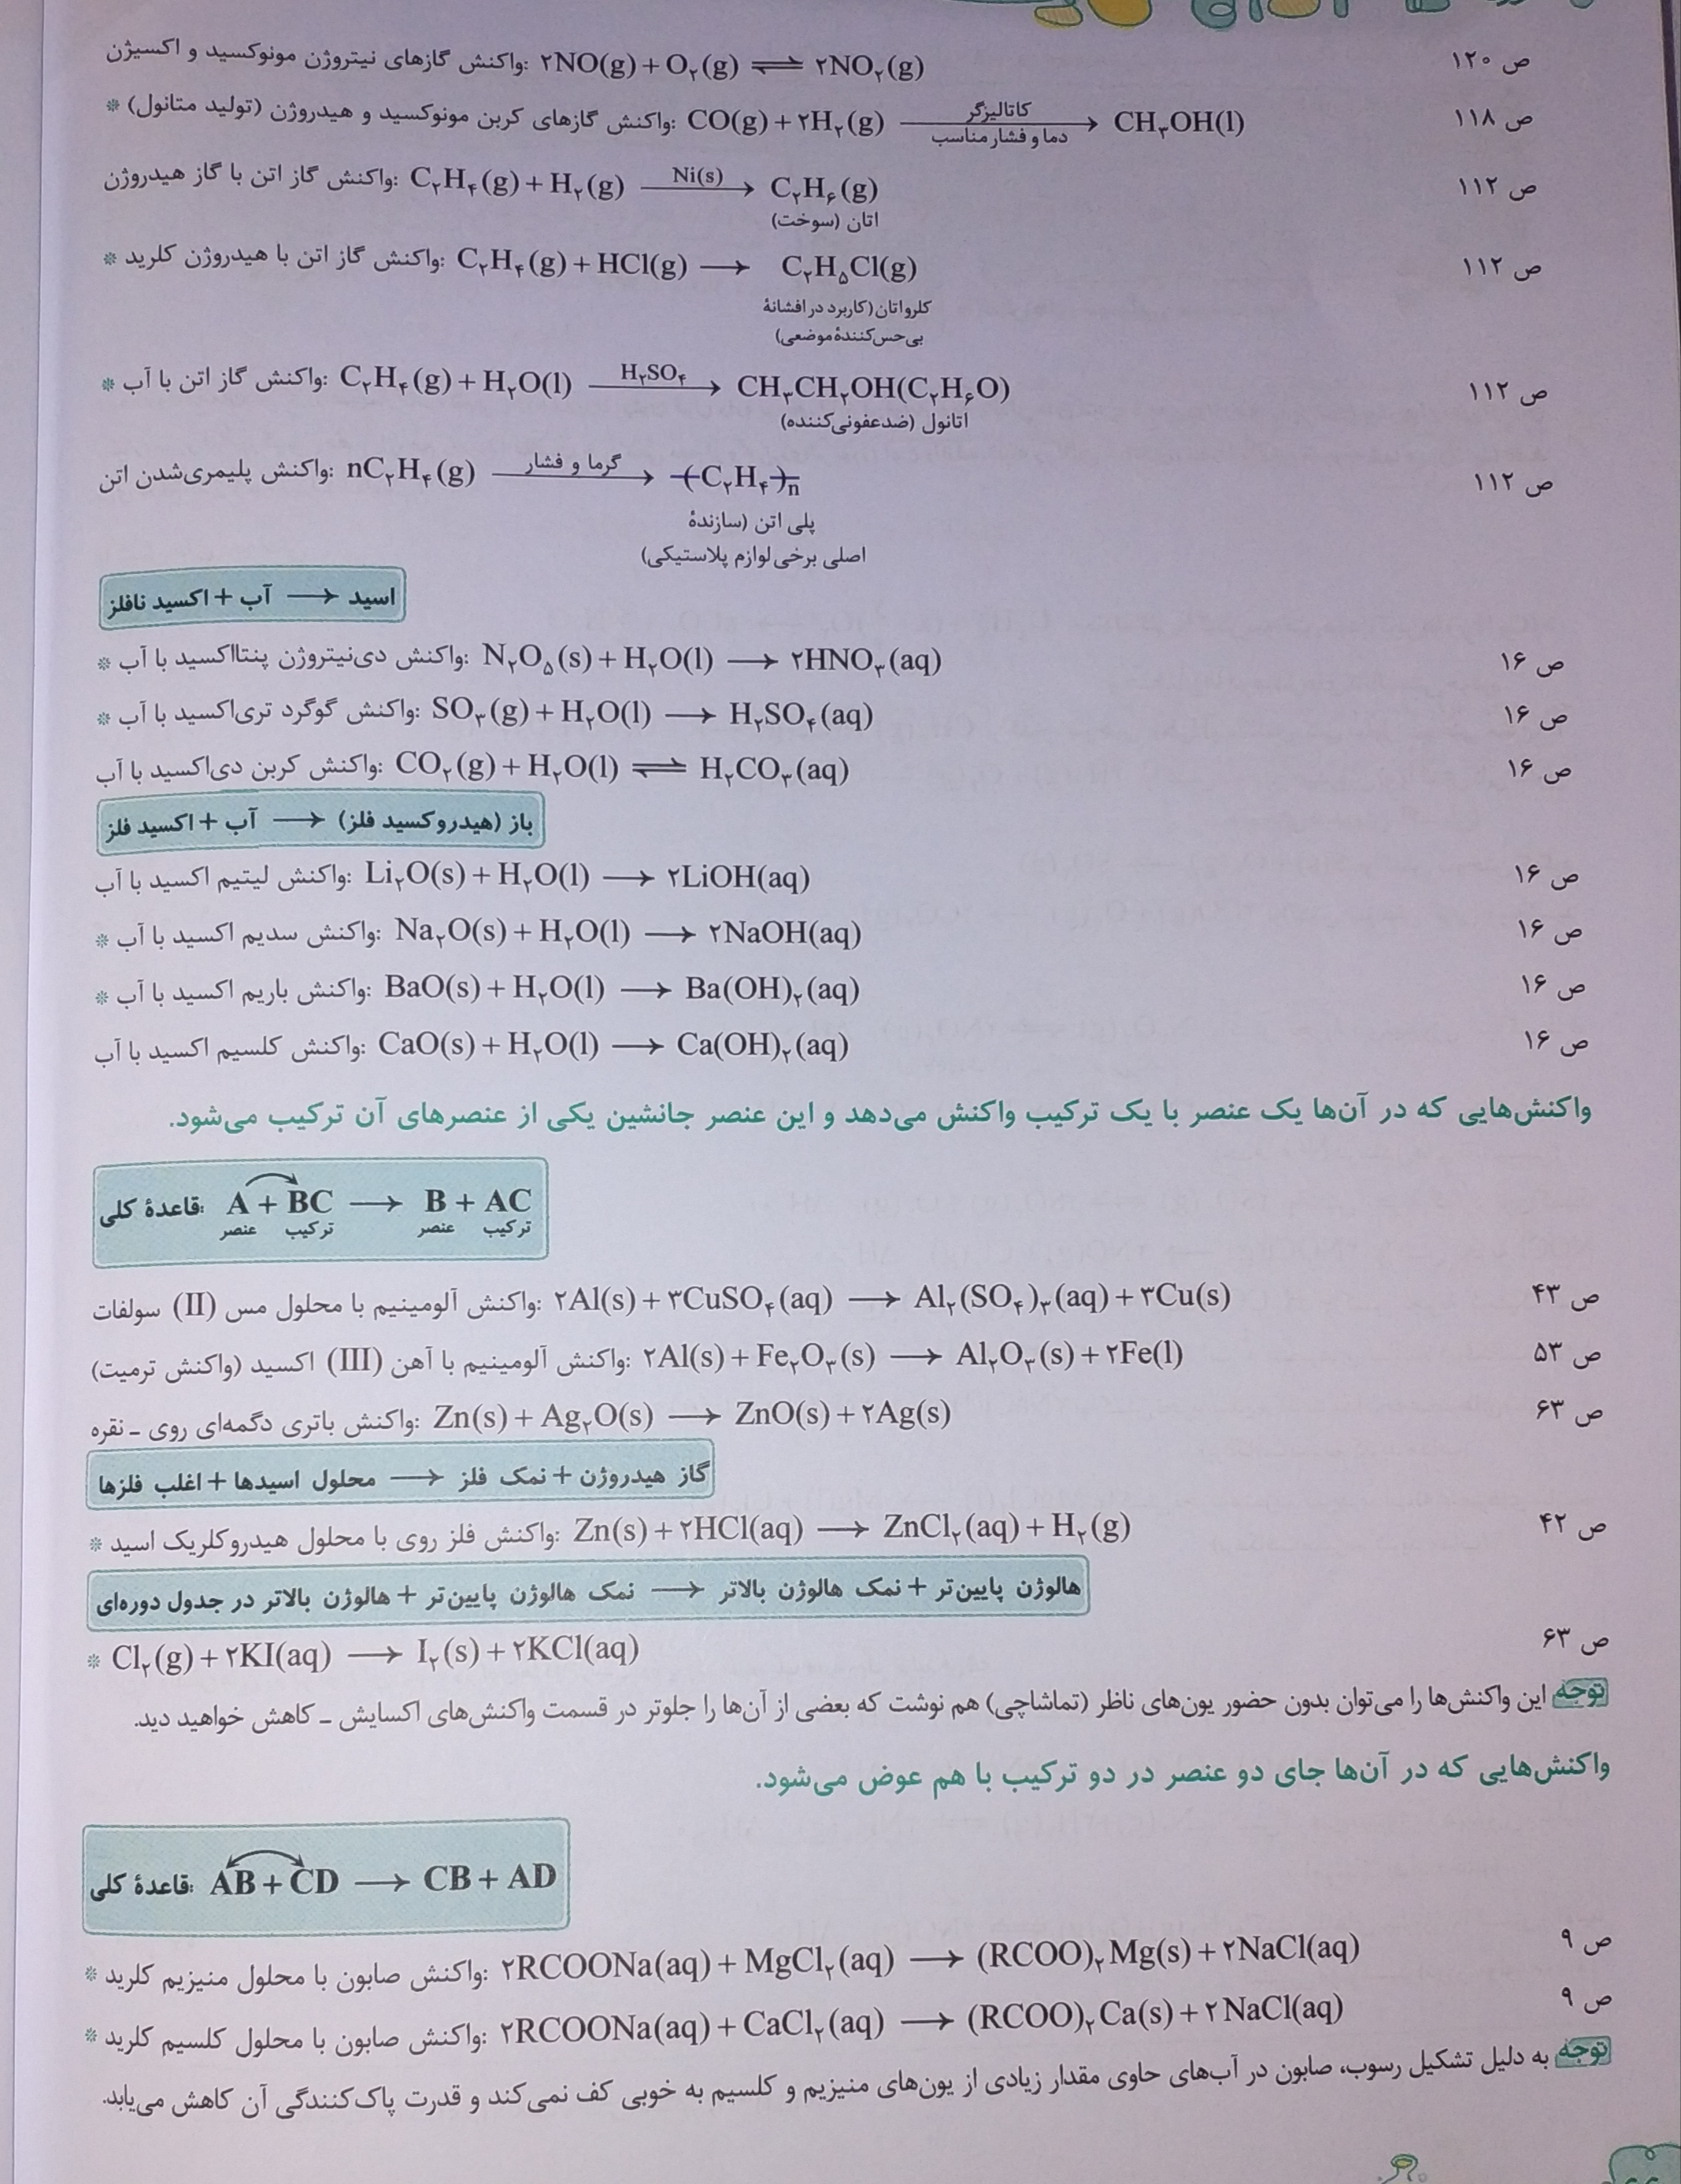 واکنش گازهای نیتروژن مونوکسید و اکسیژن: ۲NO(g) + O₂(g) ⇌ ۲NO₂(g) ص ۱۲۰
* واکنش گازهای کربن مونوکسید و هیدروژن (تولید متانول): CO(g) + ۲H₂(g) ⟶ CH₃OH(l) ص ۱۱۸
کاتالیزگر
دما و فشار مناسب
واکنش گاز اتن با گاز هیدروژن: C₂H₄(g) + H₂(g) —Ni(s)⟶ C₂H₆(g) ص ۱۱۲
اتان (سوخت)
* واکنش گاز اتن با هیدروژن کلرید: C₂H₄(g) + HCl(g) ⟶ C₂H₅Cl(g) ص ۱۱۲
کلرواتان (کاربرد در افشانهٔ
بی‌حس‌کنندهٔ موضعی)
* واکنش گاز اتن با آب: C₂H₄(g) + H₂O(l) —H₂SO₄⟶ CH₃CH₂OH(C₂H₆O) ص ۱۱۲
اتانول (ضدعفونی‌کننده)
واکنش پلیمری‌شدن اتن: nC₂H₄(g) —گرما و فشار⟶ (C₂H₄)n ص ۱۱۲
پلی اتن (سازندهٔ
اصلی برخی لوازم پلاستیکی)
اسید ⟶ آب + اکسید نافلز
* واکنش دی‌نیتروژن پنتااکسید با آب: N₂O₅(s) + H₂O(l) ⟶ ۲HNO₃(aq) ص ۱۶
* واکنش گوگرد تری‌اکسید با آب: SO₃(g) + H₂O(l) ⟶ H₂SO₄(aq) ص ۱۶
واکنش کربن دی‌اکسید با آب: CO₂(g) + H₂O(l) ⇌ H₂CO₃(aq) ص ۱۶
باز (هیدروکسید فلز) ⟶ آب + اکسید فلز
واکنش لیتیم اکسید با آب: Li₂O(s) + H₂O(l) ⟶ ۲LiOH(aq) ص ۱۶
* واکنش سدیم اکسید با آب: Na₂O(s) + H₂O(l) ⟶ ۲NaOH(aq) ص ۱۶
* واکنش باریم اکسید با آب: BaO(s) + H₂O(l) ⟶ Ba(OH)₂(aq) ص ۱۶
واکنش کلسیم اکسید با آب: CaO(s) + H₂O(l) ⟶ Ca(OH)₂(aq) ص ۱۶
واکنش‌هایی که در آن‌ها یک عنصر با یک ترکیب واکنش می‌دهد و این عنصر جانشین یکی از عنصرهای آن ترکیب می‌شود.
قاعدهٔ کلی: A + BC ⟶ B + AC
عنصر ترکیب عنصر ترکیب
واکنش آلومینیم با محلول مس (II) سولفات: ۲Al(s) + ۳CuSO₄(aq) ⟶ Al₂(SO₄)₃(aq) + ۳Cu(s) ص ۴۳
واکنش آلومینیم با آهن (III) اکسید (واکنش ترمیت): ۲Al(s) + Fe₂O₃(s) ⟶ Al₂O₃(s) + ۲Fe(l) ص ۵۳
واکنش باتری دگمه‌ای روی ـ نقره: Zn(s) + Ag₂O(s) ⟶ ZnO(s) + ۲Ag(s) ص ۶۳
گاز هیدروژن + نمک فلز ⟶ محلول اسیدها + اغلب فلزها
* واکنش فلز روی با محلول هیدروکلریک اسید: Zn(s) + ۲HCl(aq) ⟶ ZnCl₂(aq) + H₂(g) ص ۴۲
هالوژن پایین‌تر + نمک هالوژن بالاتر ⟶ نمک هالوژن پایین‌تر + هالوژن بالاتر در جدول دوره‌ای
* Cl₂(g) + ۲KI(aq) ⟶ I₂(s) + ۲KCl(aq) ص ۶۳
توجه این واکنش‌ها را می‌توان بدون حضور یون‌های ناظر (تماشاچی) هم نوشت که بعضی از آن‌ها را جلوتر در قسمت واکنش‌های اکسایش ـ کاهش خواهید دید.
واکنش‌هایی که در آن‌ها جای دو عنصر در دو ترکیب با هم عوض می‌شود.
قاعدهٔ کلی: AB + CD ⟶ CB + AD
* واکنش صابون با محلول منیزیم کلرید: ۲RCOONa(aq) + MgCl₂(aq) ⟶ (RCOO)₂Mg(s) + ۲NaCl(aq) ص ۹
* واکنش صابون با محلول کلسیم کلرید: ۲RCOONa(aq) + CaCl₂(aq) ⟶ (RCOO)₂Ca(s) + ۲NaCl(aq) ص ۹
توجه به دلیل تشکیل رسوب، صابون در آب‌های حاوی مقدار زیادی از یون‌های منیزیم و کلسیم به خوبی کف نمی‌کند و قدرت پاک‌کنندگی آن کاهش می‌یابد.